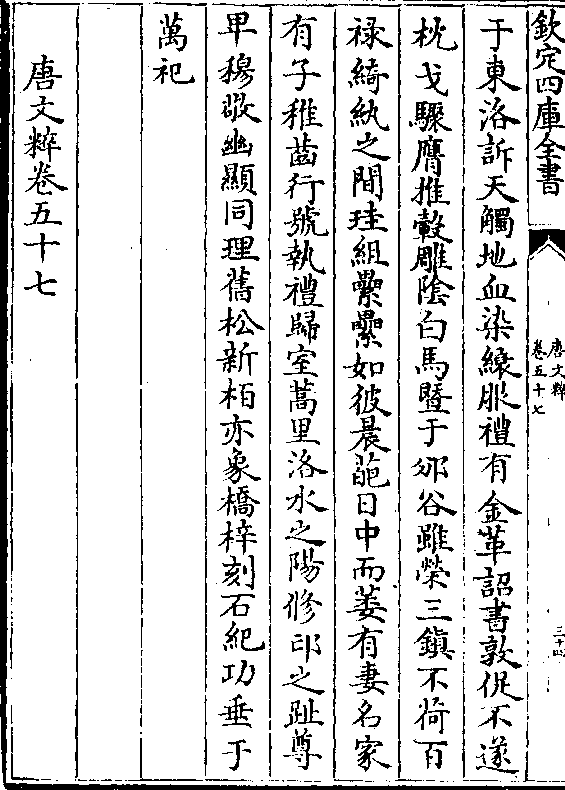 欽定四庫全書
唐文粹
卷五十七
三十四
于東洛訴天觸地血染縗服禮有金革詔書敦促不遂
枕戈驟膺推轂雕陰白馬暨于邠谷雖榮三鎮不荷百
祿綺紈之間珪組纍纍如彼晨葩日中而萎有妻名家
有子稚齒行號執禮歸室蒿里洛水之陽修邙之趾尊
卑穆敬幽顯同理舊松新栢亦象橋梓刻石紀功垂于
萬祀
唐文粹卷五十七